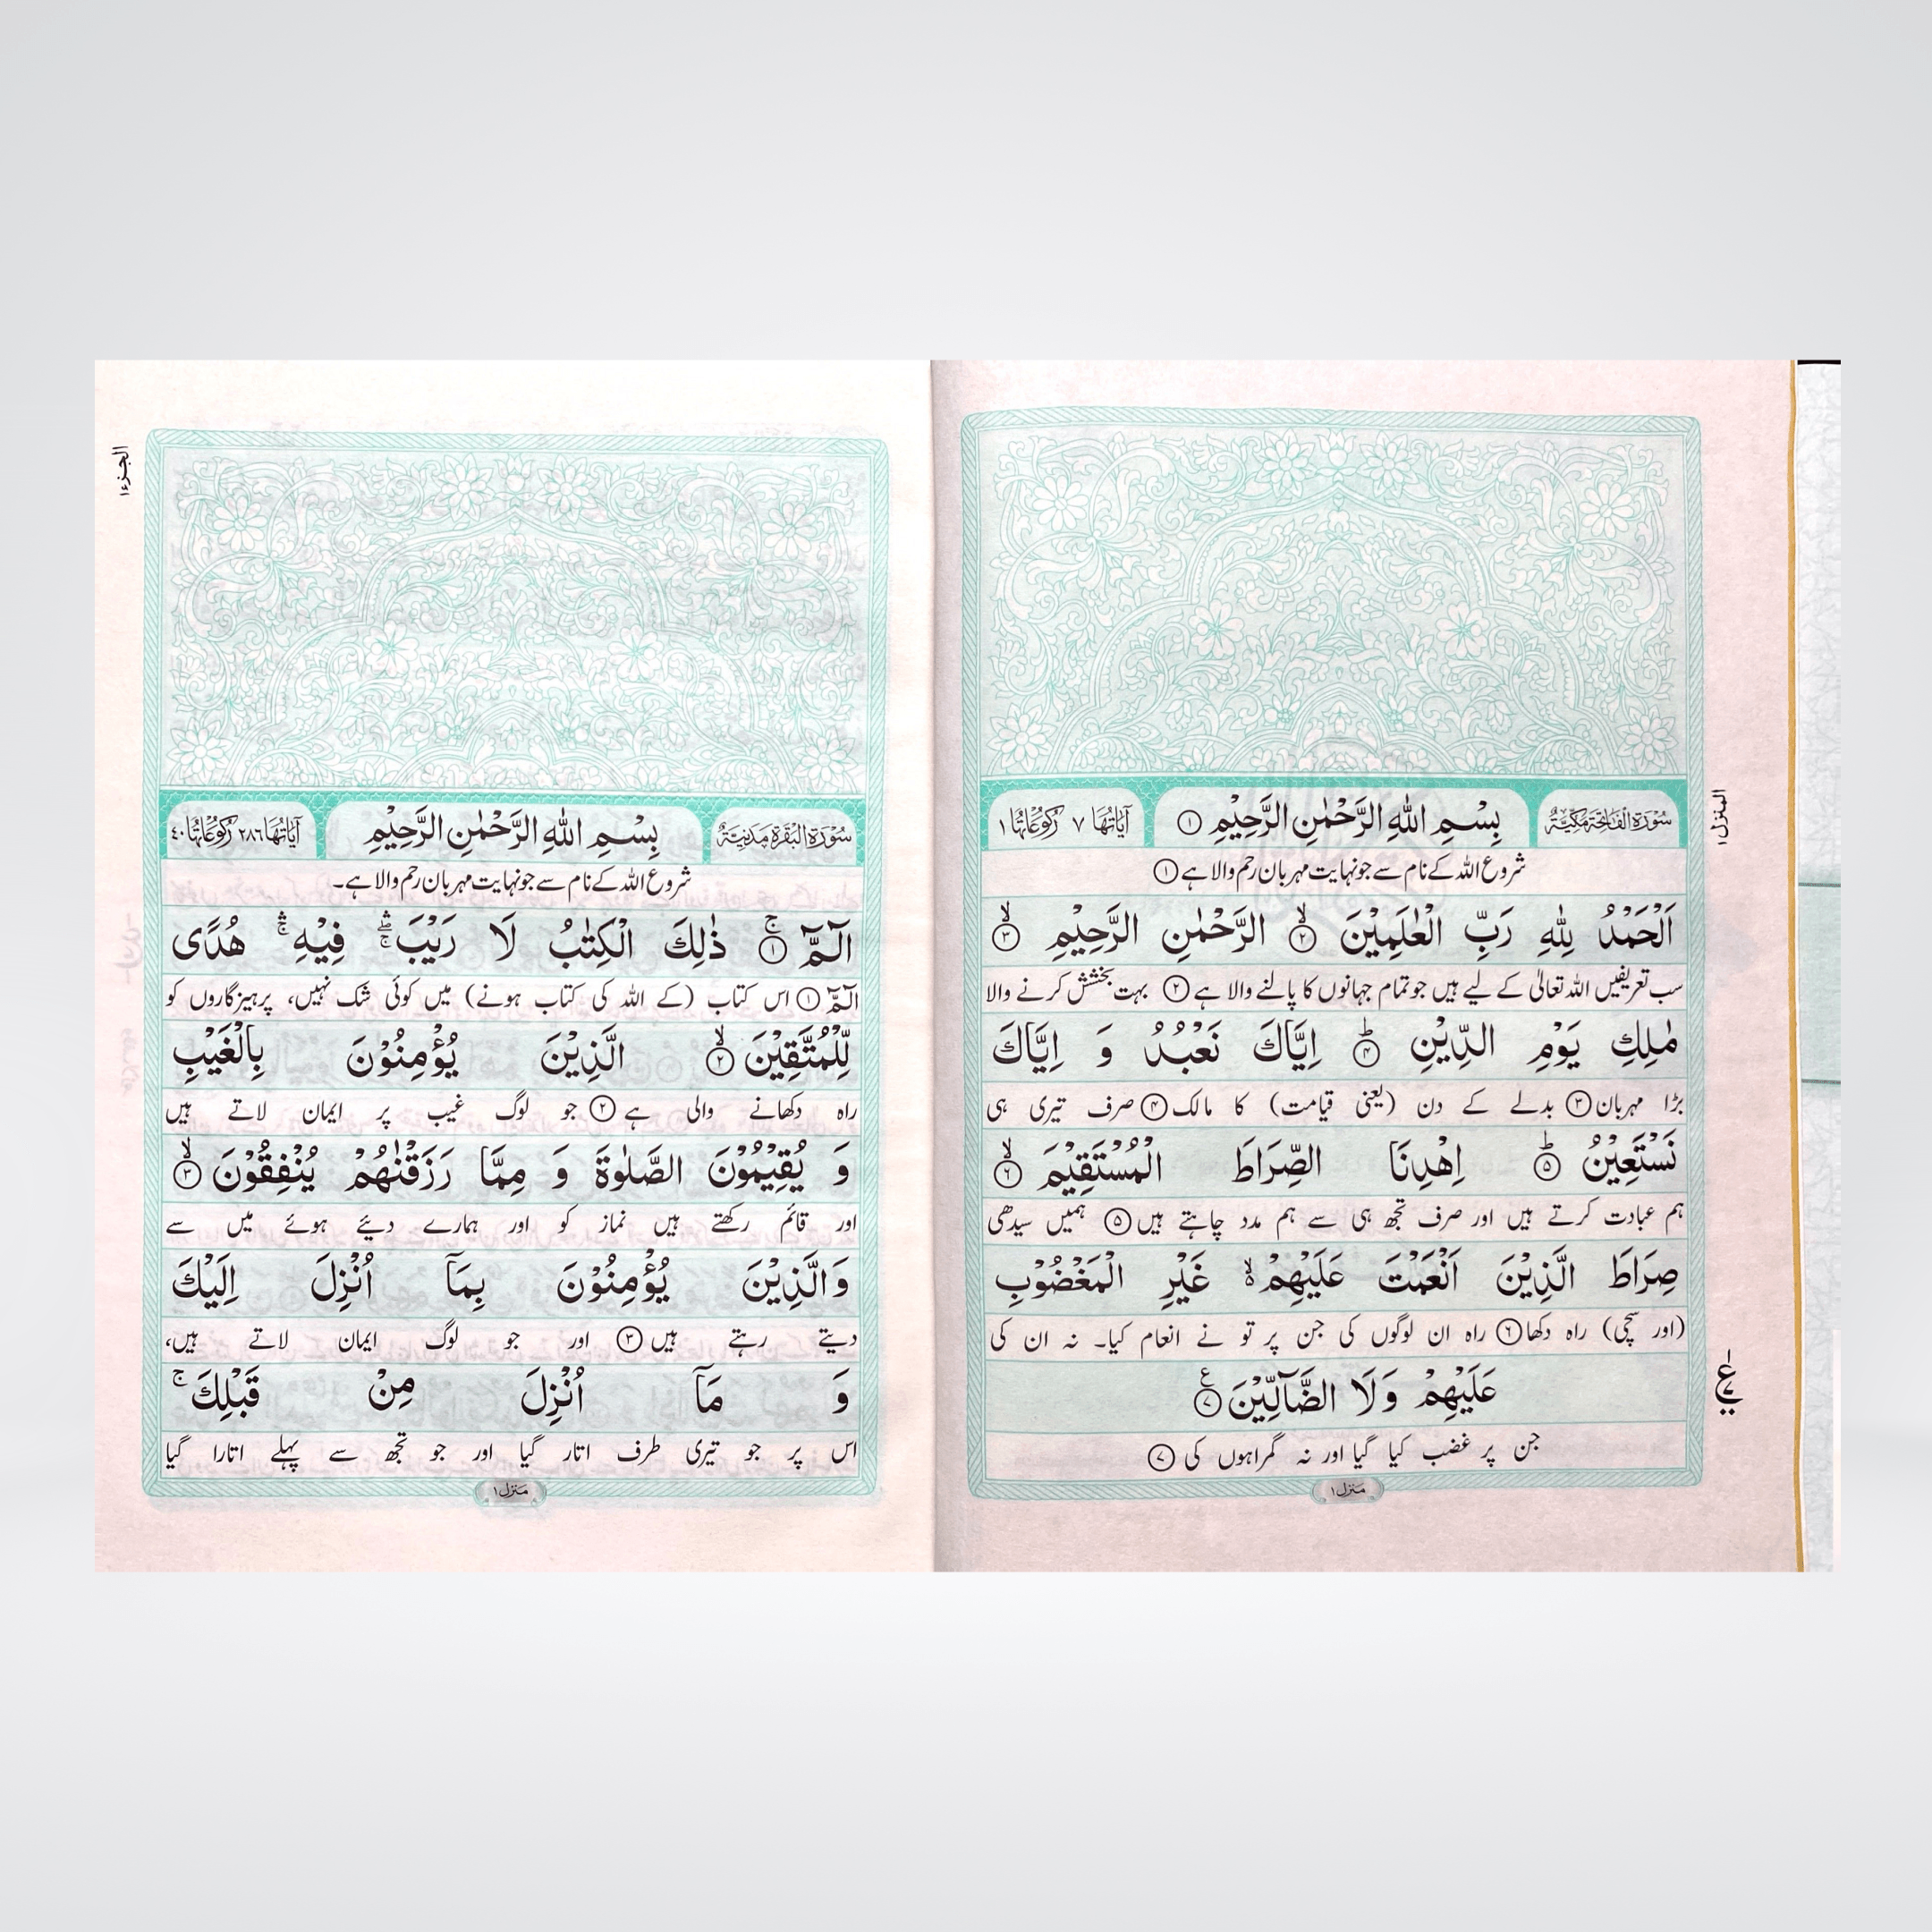 سُوۡرَۃُ الۡفَاتِحَۃِ مَکِّیَّۃٌ
بِسۡمِ اللہِ الرَّحۡمٰنِ الرَّحِیۡمِ ۝۱
اٰیَاتُہَا ۷ رُکُوۡعَاتُہَا ۱
شروع اللہ کے نام سے جو نہایت مہربان رحم والا ہے ۝۱
اَلۡحَمۡدُ لِلہِ رَبِّ الۡعٰلَمِیۡنَ ۝۲ۙ الرَّحۡمٰنِ الرَّحِیۡمِ ۝۳ۙ
سب تعریفیں اللہ تعالیٰ کے لیے ہیں جو تمام جہانوں کا پالنے والا ہے ۝۲ بہت بخشش کرنے والا
مٰلِکِ یَوۡمِ الدِّیۡنِ ۝۴ؕ اِیَّاکَ نَعۡبُدُ وَ اِیَّاکَ
بڑا مہربان ۝۳ بدلے کے دن (یعنی قیامت) کا مالک ۝۴ صرف تیری ہی
نَسۡتَعِیۡنُ ۝۵ؕ اِہۡدِنَا الصِّرَاطَ الۡمُسۡتَقِیۡمَ ۝۶ۙ
ہم عبادت کرتے ہیں اور صرف تجھ ہی سے ہم مدد چاہتے ہیں ۝۵ ہمیں سیدھی
صِرَاطَ الَّذِیۡنَ اَنۡعَمۡتَ عَلَیۡہِمۡ ۬ۙ غَیۡرِ الۡمَغۡضُوۡبِ
(اور سچی) راہ دکھا ۝۶ راہ ان لوگوں کی جن پر تو نے انعام کیا۔ نہ ان کی
عَلَیۡہِمۡ وَلَا الضَّآلِّیۡنَ ۝۷ع
جن پر غضب کیا گیا اور نہ گمراہوں کی ۝۷
منزل ۱
المنزل ۱
الجزء ۱
سُوۡرَۃُ الۡبَقَرَۃِ مَدَنِیَّۃٌ
بِسۡمِ اللہِ الرَّحۡمٰنِ الرَّحِیۡمِ
اٰیَاتُہَا ۲۸۶ رُکُوۡعَاتُہَا ۴۰
شروع اللہ کے نام سے جو نہایت مہربان رحم والا ہے۔
الٓـمّٓ ۝۱ۚ ذٰلِکَ الۡکِتٰبُ لَا رَیۡبَ ۚۖۛ فِیۡہِ ۚۛ ہُدًی
الٓمّٓ ۝۱ اس کتاب (کے اللہ کی کتاب ہونے) میں کوئی شک نہیں، پرہیزگاروں کو
لِّلۡمُتَّقِیۡنَ ۝۲ۙ الَّذِیۡنَ یُؤۡمِنُوۡنَ بِالۡغَیۡبِ
راہ دکھانے والی ہے ۝۲ جو لوگ غیب پر ایمان لاتے ہیں
وَ یُقِیۡمُوۡنَ الصَّلٰوۃَ وَ مِمَّا رَزَقۡنٰہُمۡ یُنۡفِقُوۡنَ ۝۳ۙ
اور قائم رکھتے ہیں نماز کو اور ہمارے دیئے ہوئے میں سے
وَالَّذِیۡنَ یُؤۡمِنُوۡنَ بِمَاۤ اُنۡزِلَ اِلَیۡکَ
دیتے رہتے ہیں ۝۳ اور جو لوگ ایمان لاتے ہیں،
وَ مَاۤ اُنۡزِلَ مِنۡ قَبۡلِکَ ۚ
اس پر جو تیری طرف اتار گیا اور جو تجھ سے پہلے اتارا گیا
منزل ۱